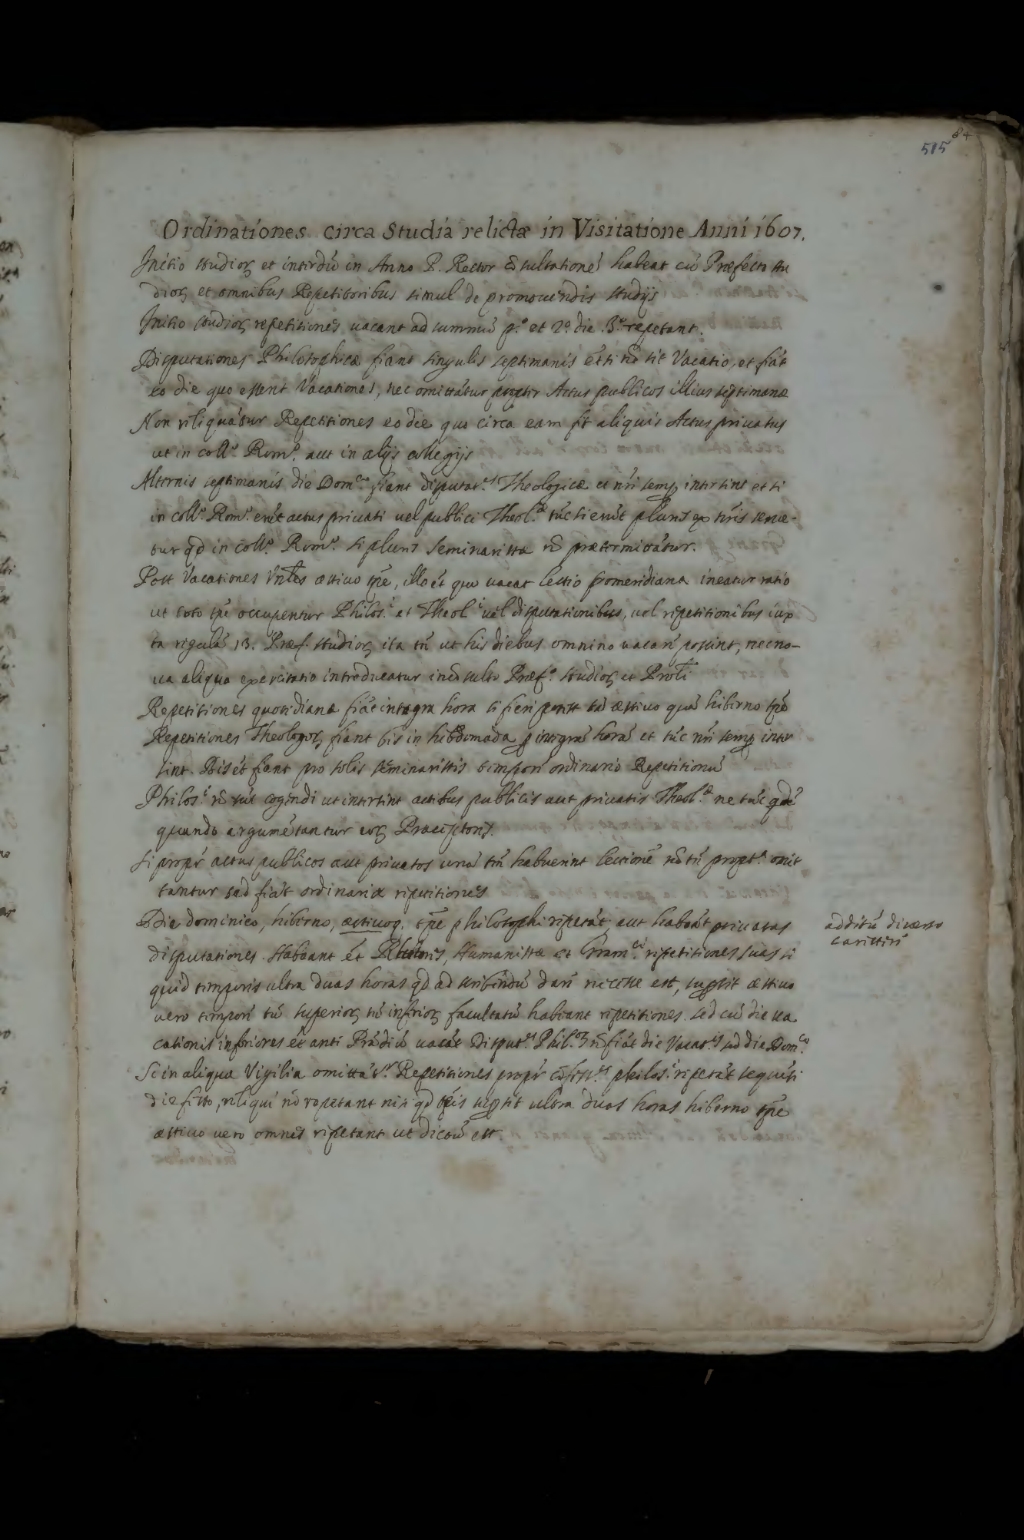 515 84
Ordinationes circa Studia relictæ in Visitatione Anni 1607.
Initio studioꝝ et interdũ in Anno P. Rector cõsultationeʼ habeat cũ Præfecto stu
dioꝝ et omnibus Repetitoribus simul de promouẽdis studijs
Initio studioꝝ repetitiones uacant ad summũ p.º et 2º die. 3º repetant.
Disputationes Philosophicæ fiant singulis septimanis etsi nõ sit Vacatio, et fiãt
eo die quo essent Vacationes, nec omittãtur propter Actus publicos illius septimanæ
Non reliquãtur Repetitiones eo die quo circa eam fit aliquis Actus priuatus
ut in coll.º Rom.º aut in alijs collegijs
Alternis septimanis die Dom.co fiant disputat.es Theologicæ et nr̃i semp intersint et si
in coll.º Rom.º erũt actus priuati uel publici Theol.æ tũc si erũt plures ex nr̃is serue-
tur qd in coll.º Rom.º si plures Seminaristæ nõ prætermittãtur.
Post Vacationes Vñles æstiuo tp̃e, illo ẽt quo uacat lectio pomeridiana ineatur ratio
ut toto tp̃e occupentur Philos.i et Theol.i uel disputationibus, uel repetitionibus iux
ta regulã 13. Præf. studioꝝ ita tñ ut his diebus omnino uacarẽ possint, nec no-
ua aliqua exercitatio introducatur incõsulto Præf.º studioꝝ et Prõli
Repetitiones quotidianæ fiãt integra hora si fieri potest tã æstiuo quã hiberno tp̃e
Repetitiones Theologoꝝ fiant bis in hebdomada p integrã horã et tũc nr̃i semp inter
sint. Bis ẽt fiant pro solis seminaristis tempore ordinario Repetitionũ
Philos.i nõ sũt cogendi ut intersint actibus publicis aut priuatis Theol.æ ne tũc qdẽ
quando argumẽtantur eoꝝ Præceptores.
Si propr̃ actus publicos aut priuatos unã tm̃ habuerint lectionẽ nõ tñ propt.ª omit
tantur sed fiãt ordinariæ repetitiones
Die dominico, hiberno, æstiuoq. tp̃e philosophi repetãt, aut habeãt priuatas
disputationes. Habeant ẽt Rhetores, Humanistæ et Gram.ci repetitiones suas si
quid temporis ultra duas horas qd ad scribendũ dari necesse est, supersit æstiuo
uero tempore tũ superioꝝ tũ inferioꝝ facultatũ habeant repetitiones sed cũ die ua
cationis inferiores ẽt anti Prãdiũ uacẽt disput.es Phil.æ nõ fiãt die Vacat.is sed die Dom.co
Si in aliqua Vigilia omittãt.r Repetitiones propr̃ cõfess.es philos.i repetãt sequẽti
die festo, reliqui nõ repetant nisi qd tp̃is supersit ultra duas horas hiberno tp̃e
æstiuo uero omnes repetant ut dictũ est.
additũ diuerso
carattere